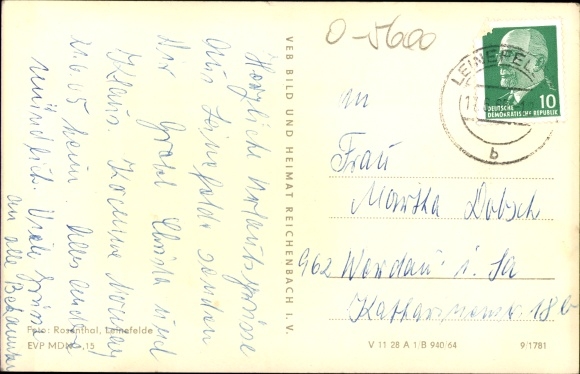 Herzliche Urlaubsgrüsse
aus Leinefelde senden
Dir Gretel Christa und
Klaus. Komme Montag
21.6.65 heim. Das andere
mündlich. Viele Grüsse
an alle Bekannten
Foto: Rosenthal, Leinefelde
EVP MDN -,15
VEB BILD UND HEIMAT REICHENBACH I. V.
O-5600
LEINEFELDE
b
DEUTSCHE
DEMOKRATISCHE REPUBLIK
10
An
Frau
Martha Dobsch
962 Werdau i. Sa
Katharinenstr. 18b
V 11 28 A 1/B 940/64
9/1781